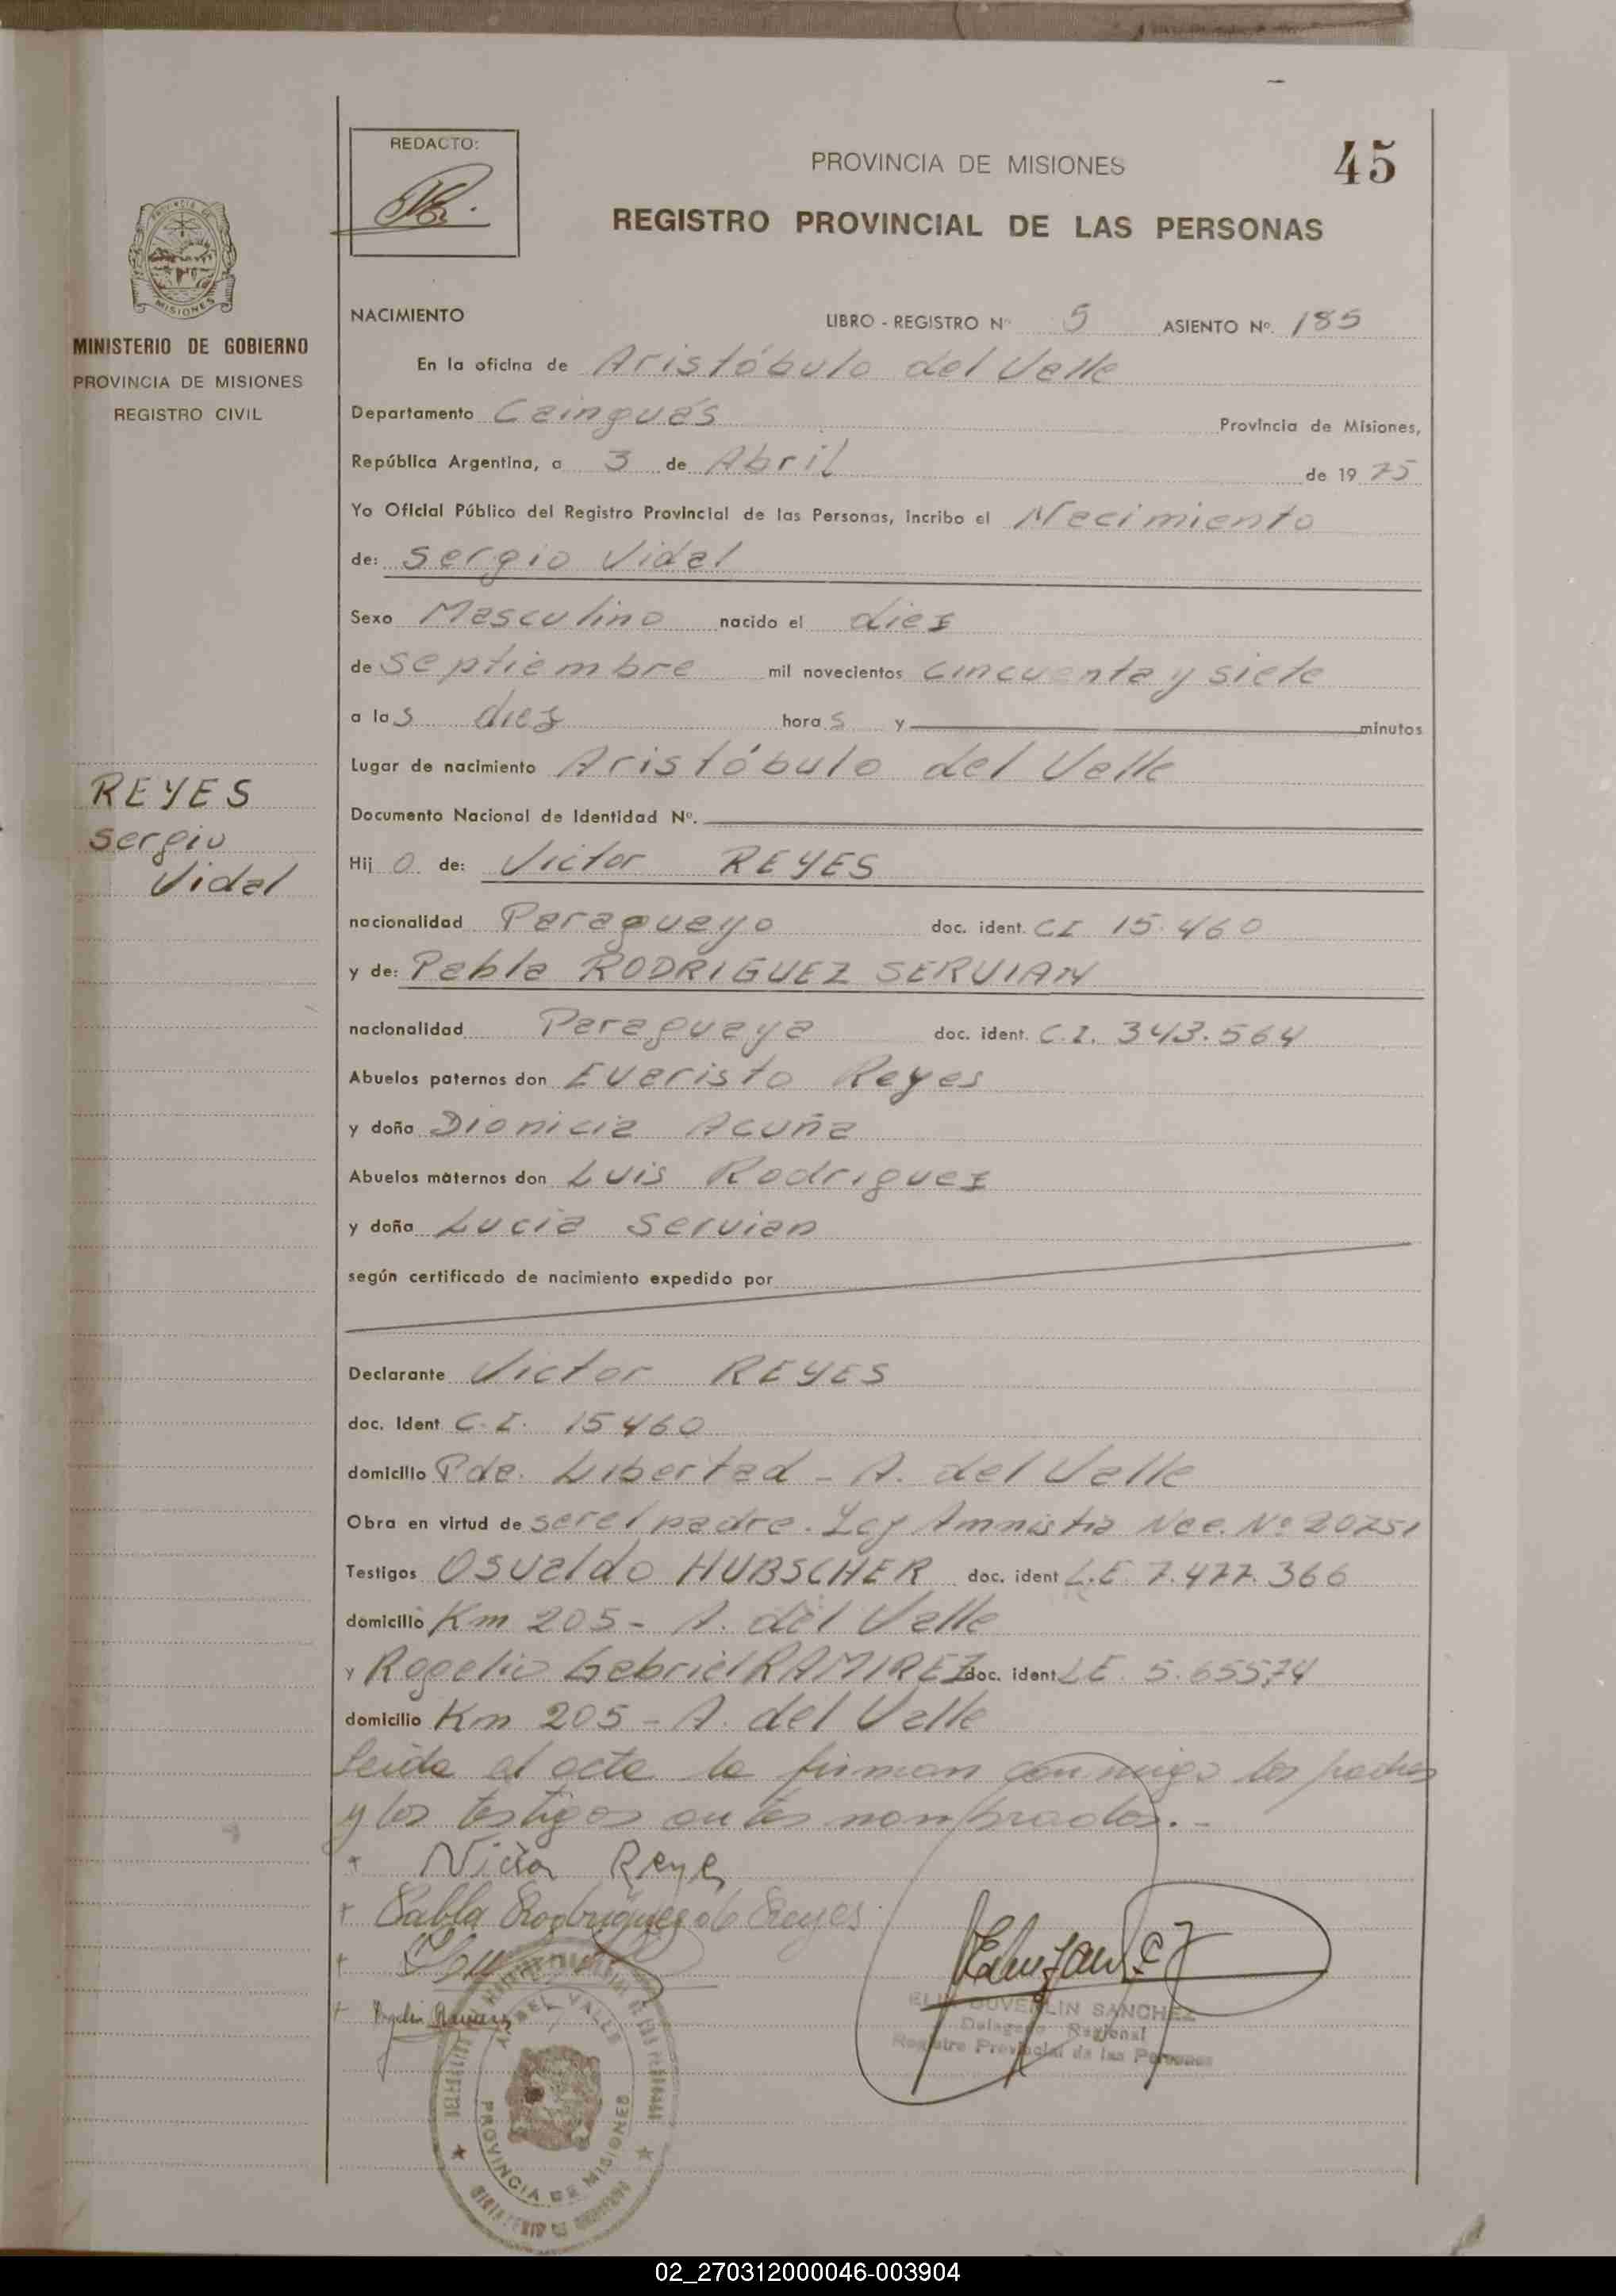 REDACTO:
PROVINCIA DE MISIONES
45
REGISTRO PROVINCIAL DE LAS PERSONAS
MISIONES
MINISTERIO DE GOBIERNO
PROVINCIA DE MISIONES
REGISTRO CIVIL
NACIMIENTO LIBRO - REGISTRO Nº 5 ASIENTO Nº. 185
En la oficina de Aristóbulo del Valle
Departamento Cainguás Provincia de Misiones,
República Argentina, a 3 de Abril de 1975
Yo Oficial Público del Registro Provincial de las Personas, incribo el Nacimiento
de: Sergio Vidal
Sexo Masculino nacido el diez
de Septiembre mil novecientos cincuenta y siete
a las diez horas y minutos
Lugar de nacimiento Aristóbulo del Valle
REYES
Sergio
Vidal
Documento Nacional de Identidad Nº.
Hijo de: Victor REYES
nacionalidad Paraguayo doc. ident. CI 15.460
y de: Pabla RODRIGUEZ SERVIAN
nacionalidad Paraguaya doc. ident. C.I. 343.564
Abuelos paternos don Evaristo Reyes
y doña Dionicia Acuña
Abuelos maternos don Luis Rodriguez
y doña Lucia Servian
según certificado de nacimiento expedido por
Declarante Victor REYES
doc. Ident C.I. 15460
domicilio Pda. Libertad - A. del Valle
Obra en virtud de ser el padre. Ley Amnistia Nac. Nº 20751
Testigos Osvaldo HUBSCHER doc. ident L.E. 7.477.366
domicilio Km 205 - A. del Valle
y Rogelio Gabriel RAMIREZ doc. ident LE. 5.65574
domicilio Km 205 - A. del Valle
Leida el acta la firman conmigo los padres
y los testigos antes nombrados.-
+ Victor Reyes
+ Pabla Rodriguez de Reyes
+
+ Rogelio Ramirez
A. DEL VALLE
PROVINCIA DE MISIONES
ELIO DUVERLIN SANCHEZ
Delegado Regional
Registro Provincial de las Personas
02_270312000046-003904